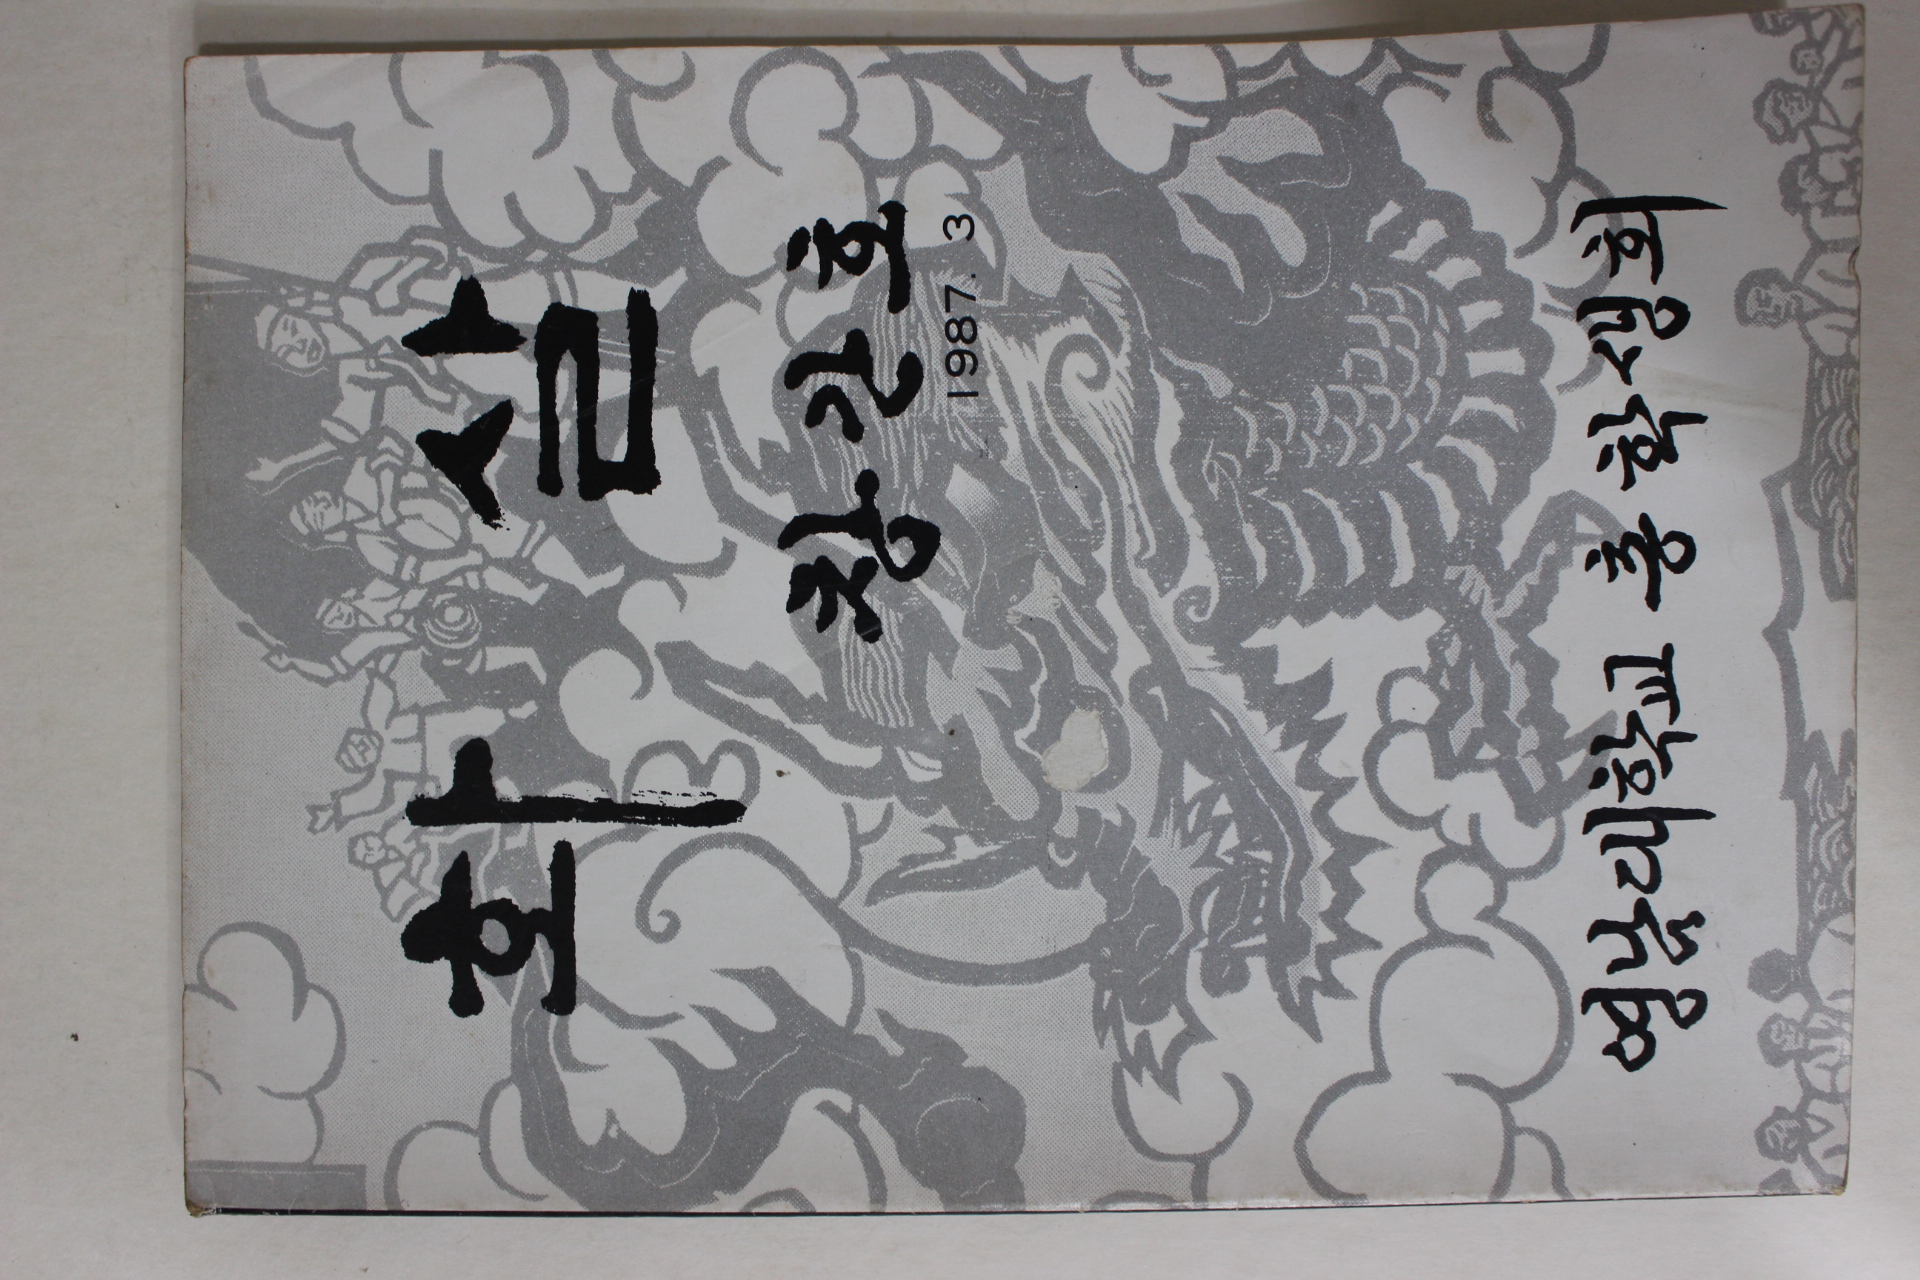 화살
창간호
1987. 3
영남대학교 총학생회